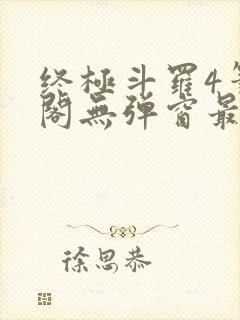 终極斗羅4
閣無弹窗最
徐思恭